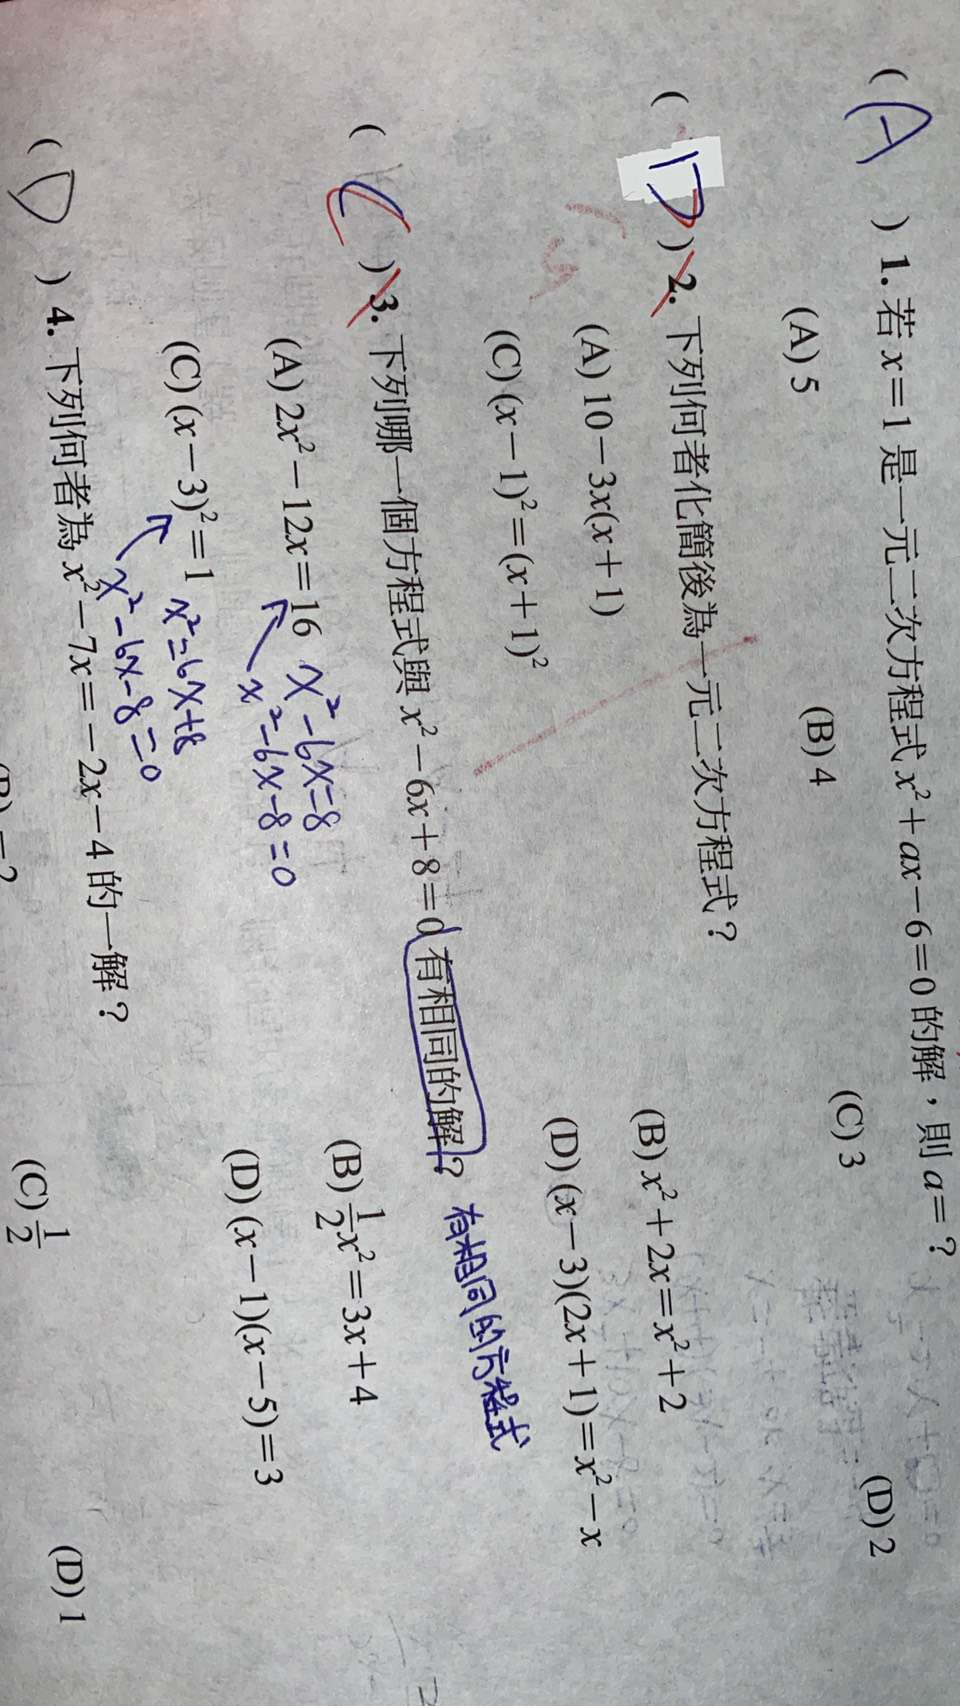 ( A ) 1. 若 x=1 是一元二次方程式 x²+ax-6=0 的解，則 a=？
(A) 5 (B) 4 (C) 3 (D) 2
( D ) 2. 下列何者化簡後為一元二次方程式？
(A) 10-3x(x+1) (B) x²+2x=x²+2
(C) (x-1)²=(x+1)² (D) (x-3)(2x+1)=x²-x
( C ) 3. 下列哪一個方程式與 x²-6x+8=0 有相同的解？ 有相同的方程式
(A) 2x²-12x=16 x²-6x=8 (B) 1/2x²=3x+4
x²-6x-8=0
(C) (x-3)²=1 x²=6x+8 (D) (x-1)(x-5)=3
x²-6x-8=0
( D ) 4. 下列何者為 x²-7x=-2x-4 的一解？
(C) 1/2 (D) 1